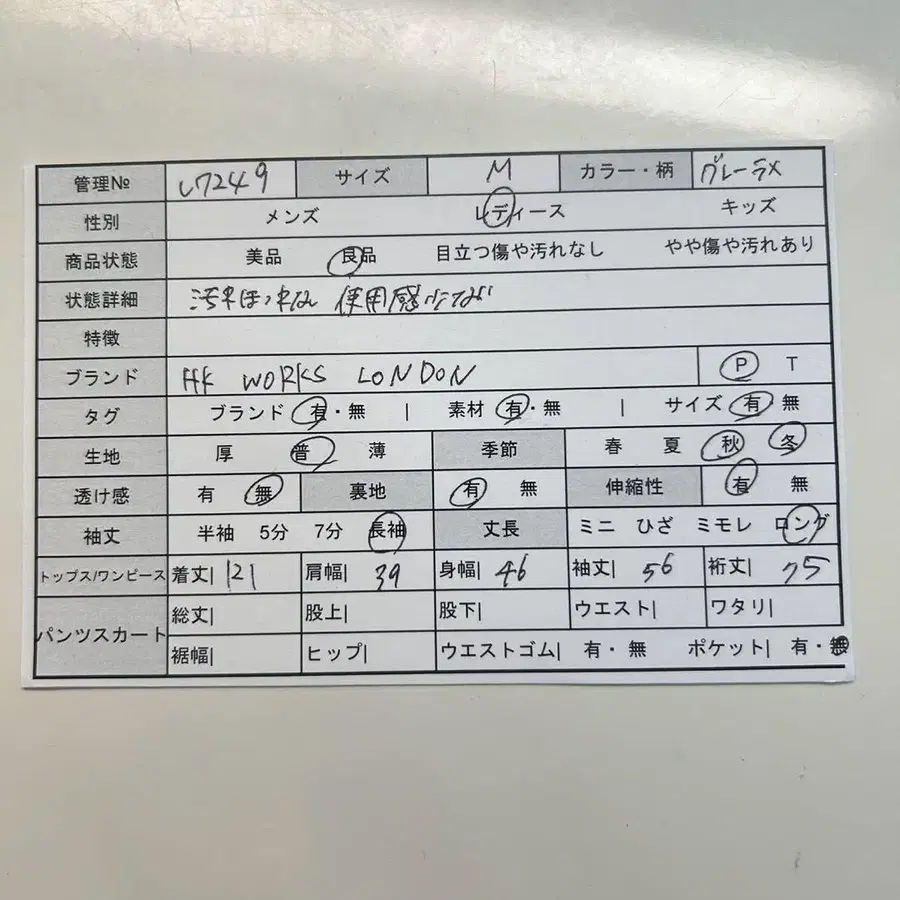 管理№ サイズ M カラー・柄 グレーラメ
性別 メンズ レディース キッズ
商品状態 美品 良品 目立つ傷や汚れなし やや傷や汚れあり
状態詳細 汚れほつれなし 使用感
特徴
ブランド HK WORKS LONDON P T
タグ ブランド 有・無 | 素材 有・無 | サイズ 有 無
生地 厚 普 薄 季節 春 夏 秋 冬
透け感 有 無 裏地 有 無 伸縮性 有 無
袖丈 半袖 5分 7分 長袖 丈長 ミニ ひざ ミモレ ロング
トップス/ワンピース 着丈| 121 肩幅| 39 身幅| 46 袖丈| 56 裄丈| 75
パンツスカート 総丈| 股上| 股下| ウエスト| ワタリ|
裾幅| ヒップ| ウエストゴム| 有・無 ポケット| 有・無